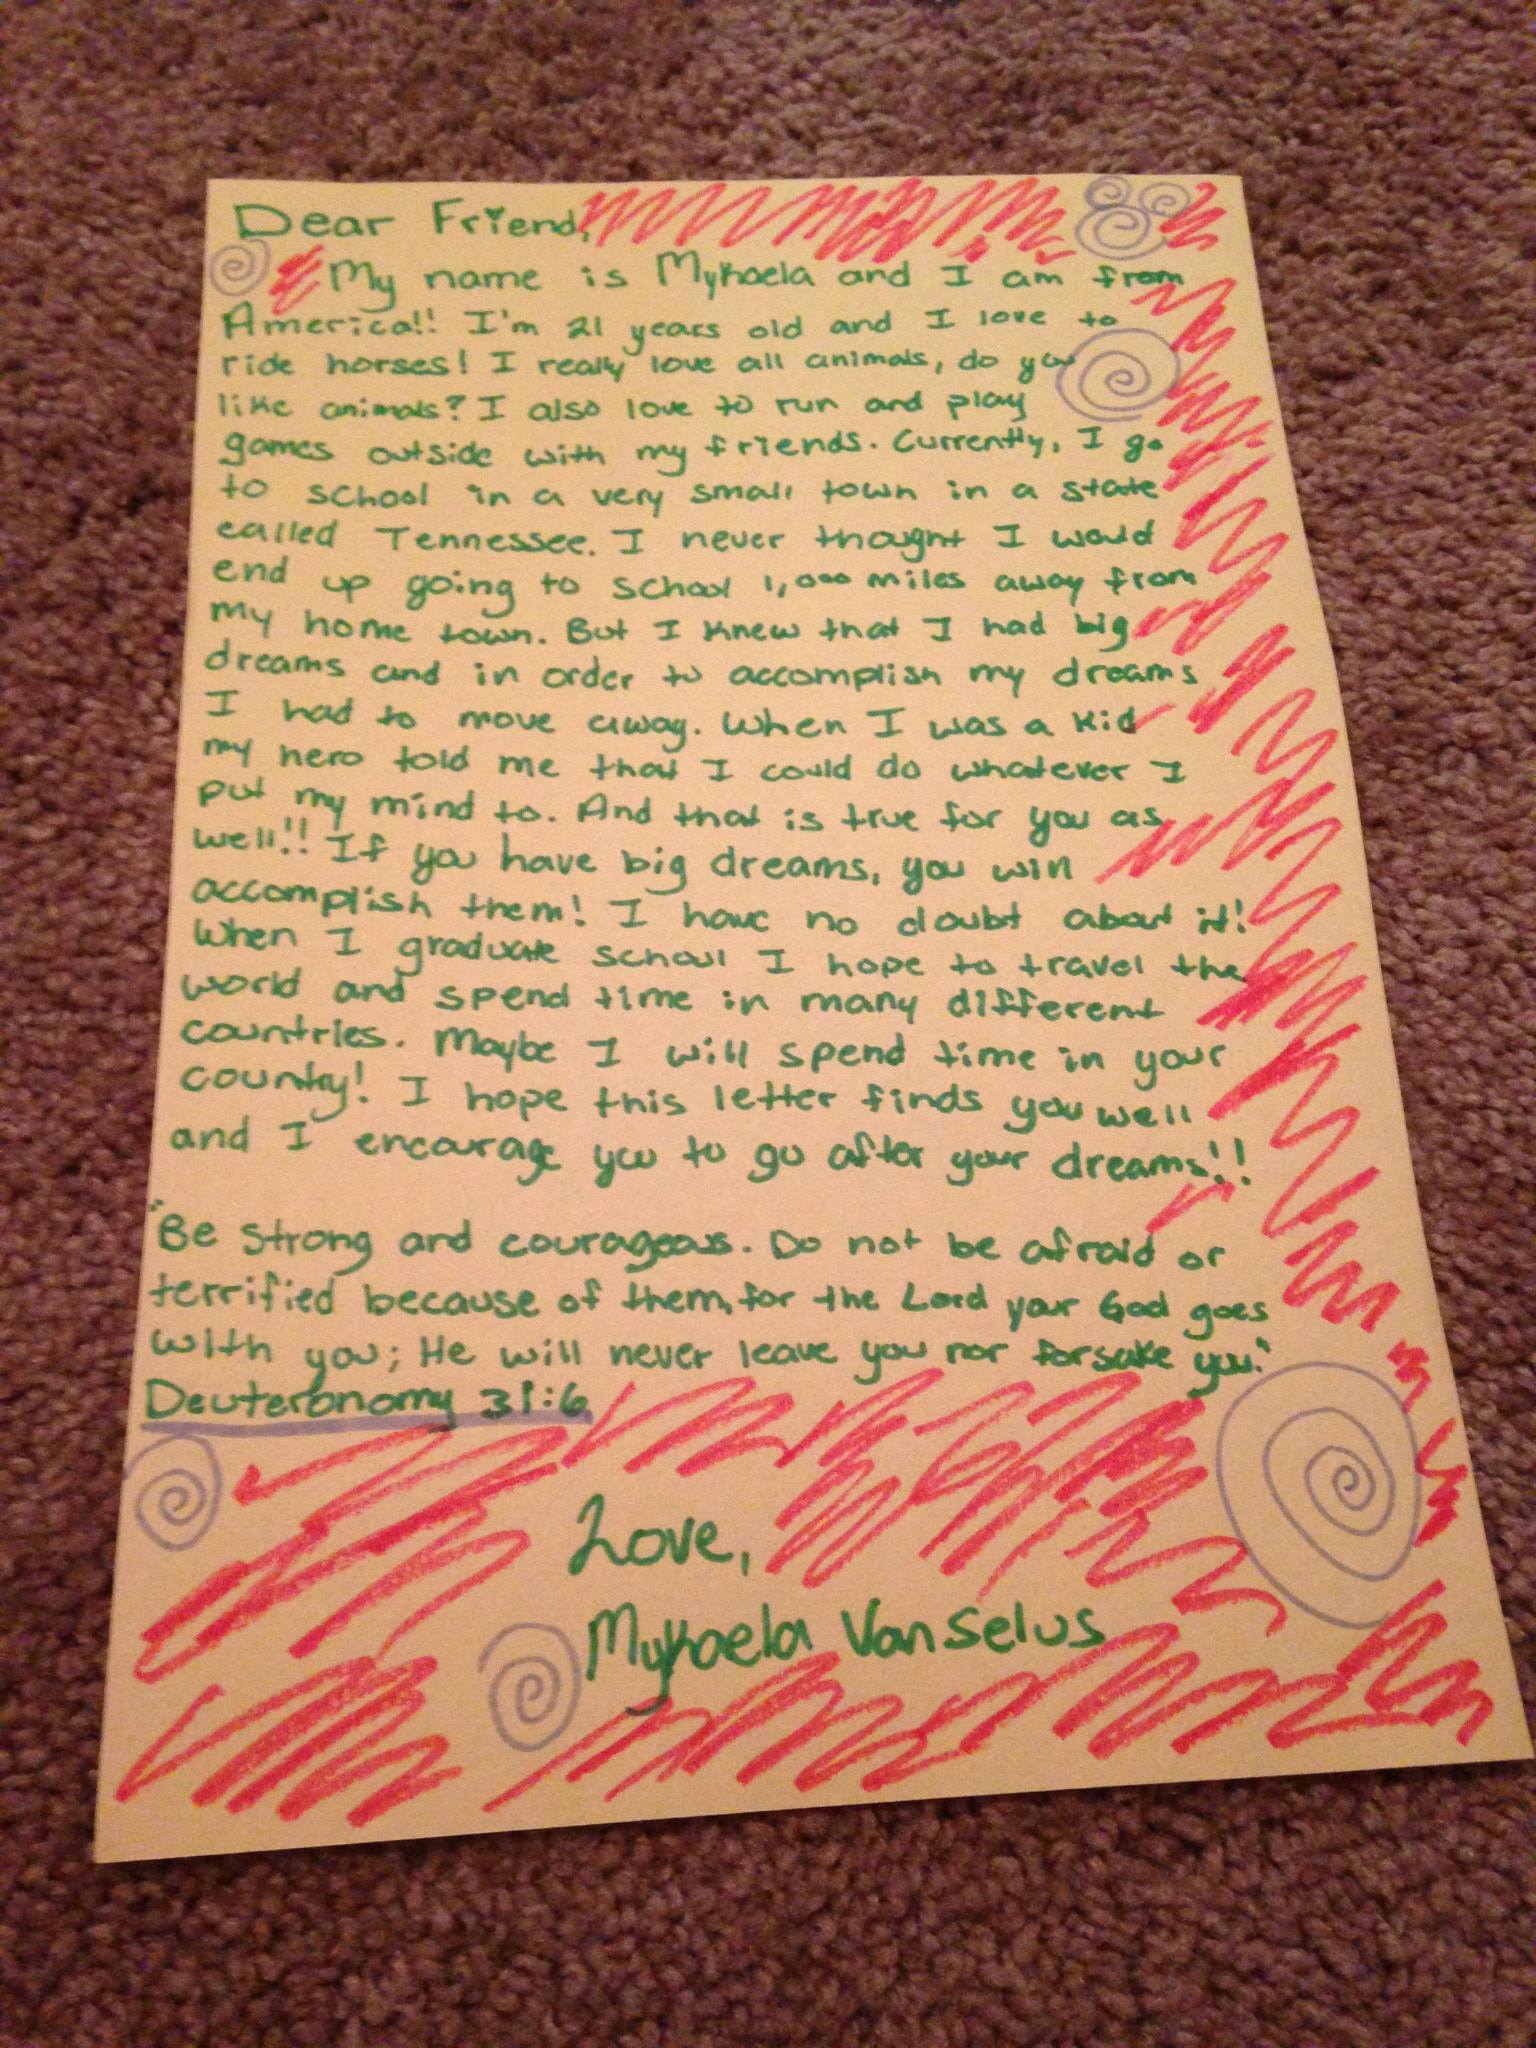 Dear Friend,
My name is Mykaela and I am from
America!! I'm 21 years old and I love to
ride horses! I really love all animals, do you
like animals? I also love to run and play
games outside with my friends. Currently, I go
to school in a very small town in a state
called Tennessee. I never thought I would
end up going to school 1,000 miles away from
my home town. But I knew that I had big
dreams and in order to accomplish my dreams
I had to move away. When I was a kid
my hero told me that I could do whatever I
put my mind to. And that is true for you as
well!! If you have big dreams, you will
accomplish them! I have no doubt about it!
When I graduate school I hope to travel the
world and spend time in many different
countries. Maybe I will spend time in your
country! I hope this letter finds you well
and I encourage you to go after your dreams!!
"Be strong and courageous. Do not be afraid or
terrified because of them, for the Lord your God goes
with you; He will never leave you nor forsake you."
Deuteronomy 31:6
Love,
Mykaela VanSelus